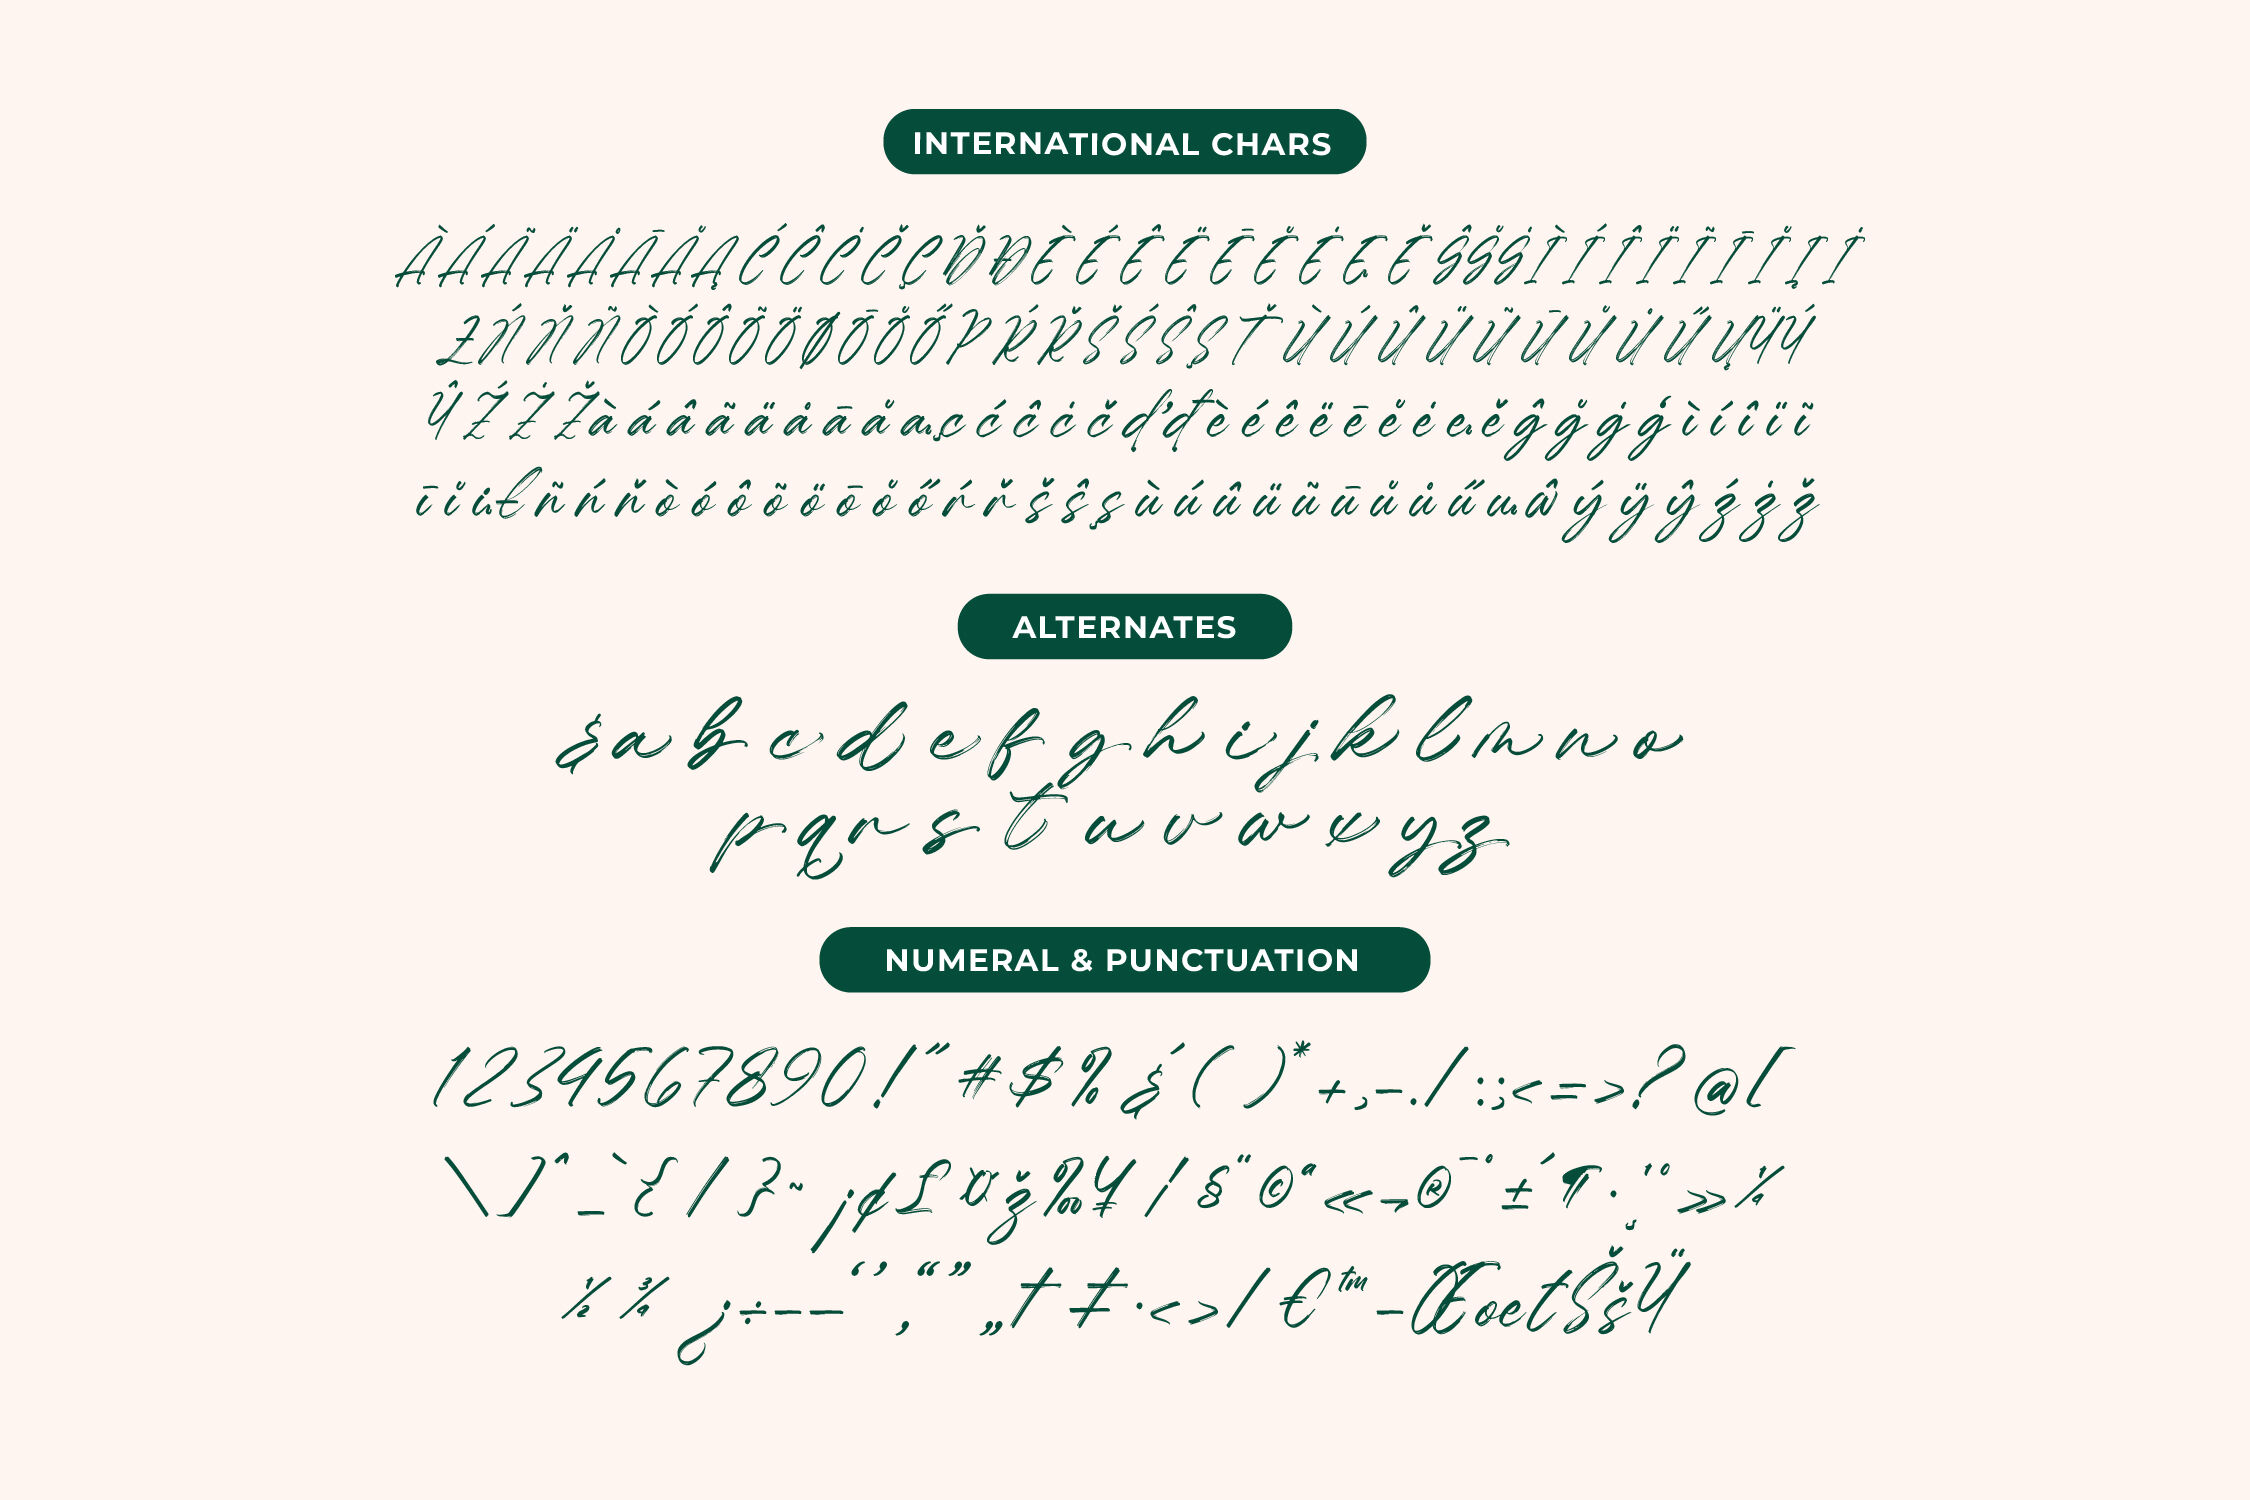 INTERNATIONAL CHARS
ÀÁÃÄȦĀÅĄĆĈĊČÇĎĐÈÉÊËĒE̊ĖĘĚĜG̊ĠÌÍÎÏĨĪI̊Įİ
ŁŃŇÑÒÓÔÕÖØŌO̊ŐPŔŘŠŚŜŞŤÙÚÛÜŨŪŮU̇ŰŲŸÝ
ŶŹŻŽàáâãäȧāåąçćĉċčďđèéêëēe̊ėęěĝg̊ġģìíîïĩ
īi̊įłñńňòóôõöōo̊őŕřšŝşùúûüũūůu̇űųŵýÿŷźżž
ALTERNATES
&abcdefghijklmno
pqrstuvwxyz
NUMERAL & PUNCTUATION
1234567890!"#$%&'()*+,-./:;<=>?@[
\]^_`{|}~¡¢£¤ž‰¥¦§¨©ª«¬®¯°±´¶·¸¹º»¼
½¾¿÷–—‘’‚“”„†‡•‹›⁄€™−ŒœtŠšŸ